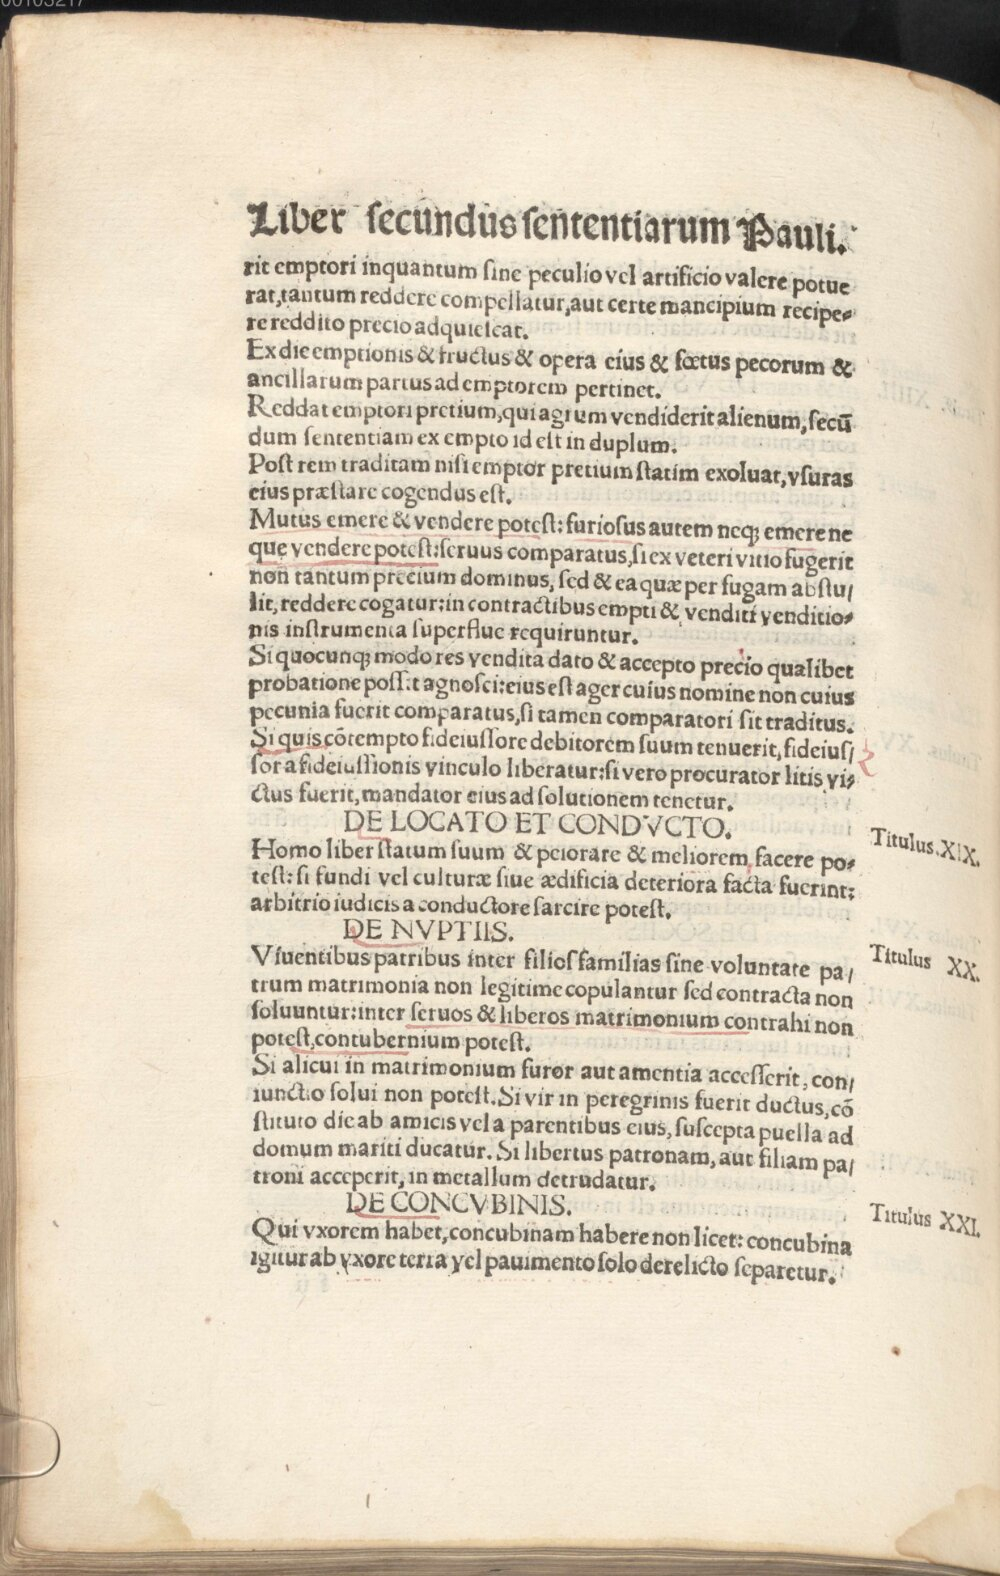 Liber secundus sententiarum Pauli.
rit emptori inquantum sine peculio vel artificio valere potue
rat, tantum reddere compellatur, aut certe mancipium recipe⸗
re reddito precio adquiescat.
Ex die emptionis & fructus & opera eius & fœtus pecorum &
ancillarum partus ad emptorem pertinet.
Reddat emptori pretium, qui agrum vendiderit alienum, secū
dum sententiam ex empto id est in duplum.
Post rem traditam nisi emptor pretium statim exoluat, vsuras
eius præstare cogendus est.
Mutus emere & vendere potest: furiosus autem neq; emere ne
que vendere potest: seruus comparatus, si ex veteri vitio fugerit
non tantum precium dominus, sed & ea quæ per fugam abstu/
lit, reddere cogatur: in contractibus empti & venditi venditio⸗
nis instrumenta superflue requiruntur.
Si quocunq; modo res vendita dato & accepto precio qualibet
probatione possit agnosci: eius est ager cuius nomine non cuius
pecunia fuerit comparatus, si tamen comparatori sit traditus.
Si quis cōtempto fideiussore debitorem suum tenuerit, fideius/
sor a fideiussionis vinculo liberatur: si vero procurator litis vi⸗
ctus fuerit, mandator eius ad solutionem tenetur.
DE LOCATO ET CONDVCTO.
Titulus. XIX.
Homo liber statum suum & peiorare & meliorem facere po⸗
test: si fundi vel culturæ siue ædificia deteriora facta fuerint:
arbitrio iudicis a conductore sarcire potest.
DE NVPTIIS.
Titulus XX.
Viuentibus patribus inter filiosfamilias sine voluntate pa/
trum matrimonia non legitime copulantur sed contracta non
soluuntur: inter seruos & liberos matrimonium contrahi non
potest, contubernium potest.
Si alicui in matrimonium furor aut amentia accesserit, con/
iunctio solui non potest. Si vir in peregrinis fuerit ductus, cō
stituto die ab amicis vel a parentibus eius, suscepta puella ad
domum mariti ducatur. Si libertus patronam, aut filiam pa/
troni acceperit, in metallum detrudatur.
DE CONCVBINIS.
Titulus XXI.
Qui vxorem habet, concubinam habere non licet: concubina
igitur ab vxore terra vel pauimento solo derelicto separetur.